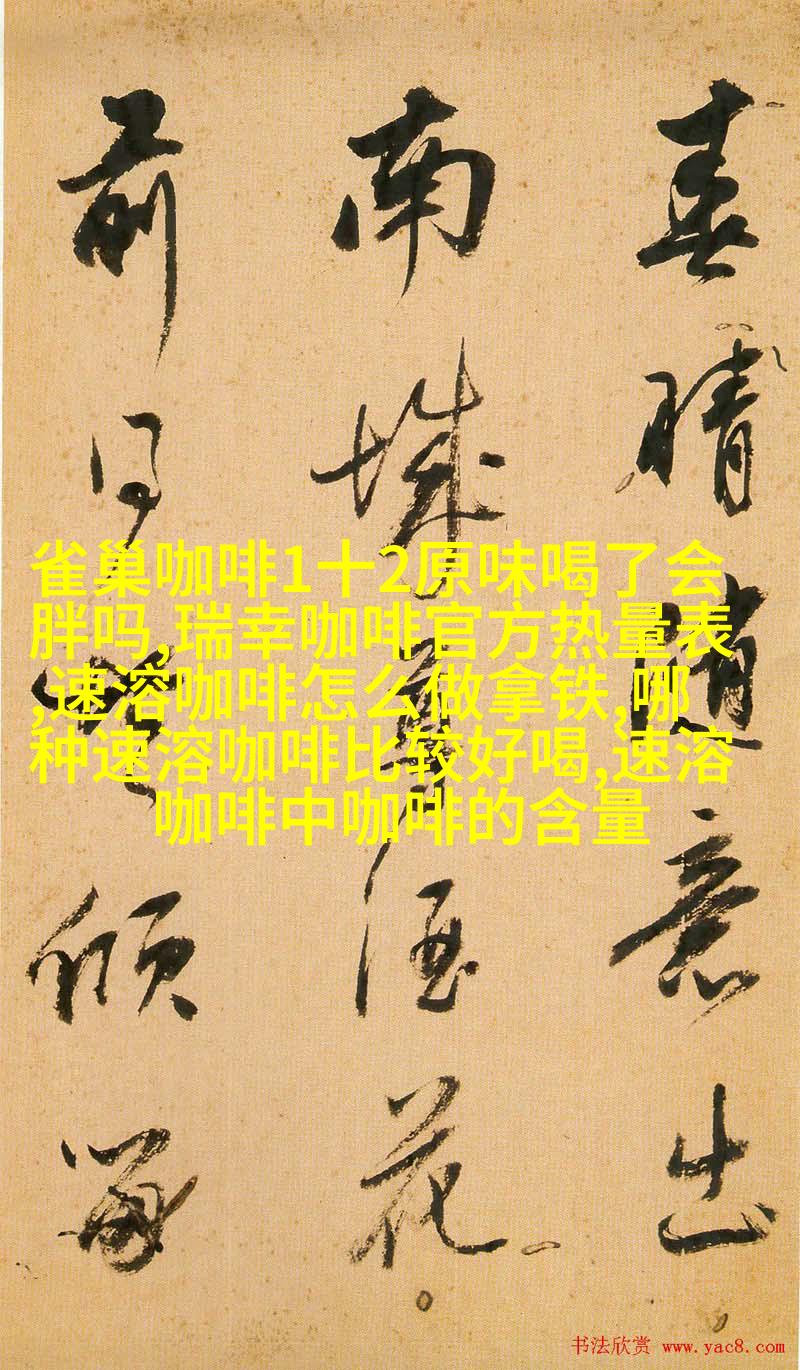 春晴随意出
南城尊酒花
前同倾
雀巢咖啡1十2原味喝了会
胖吗,瑞幸咖啡官方热量表
,速溶咖啡怎么做拿铁,哪
种速溶咖啡比较好喝,速溶
咖啡中咖啡的含量
书法欣赏 www.yac8.com